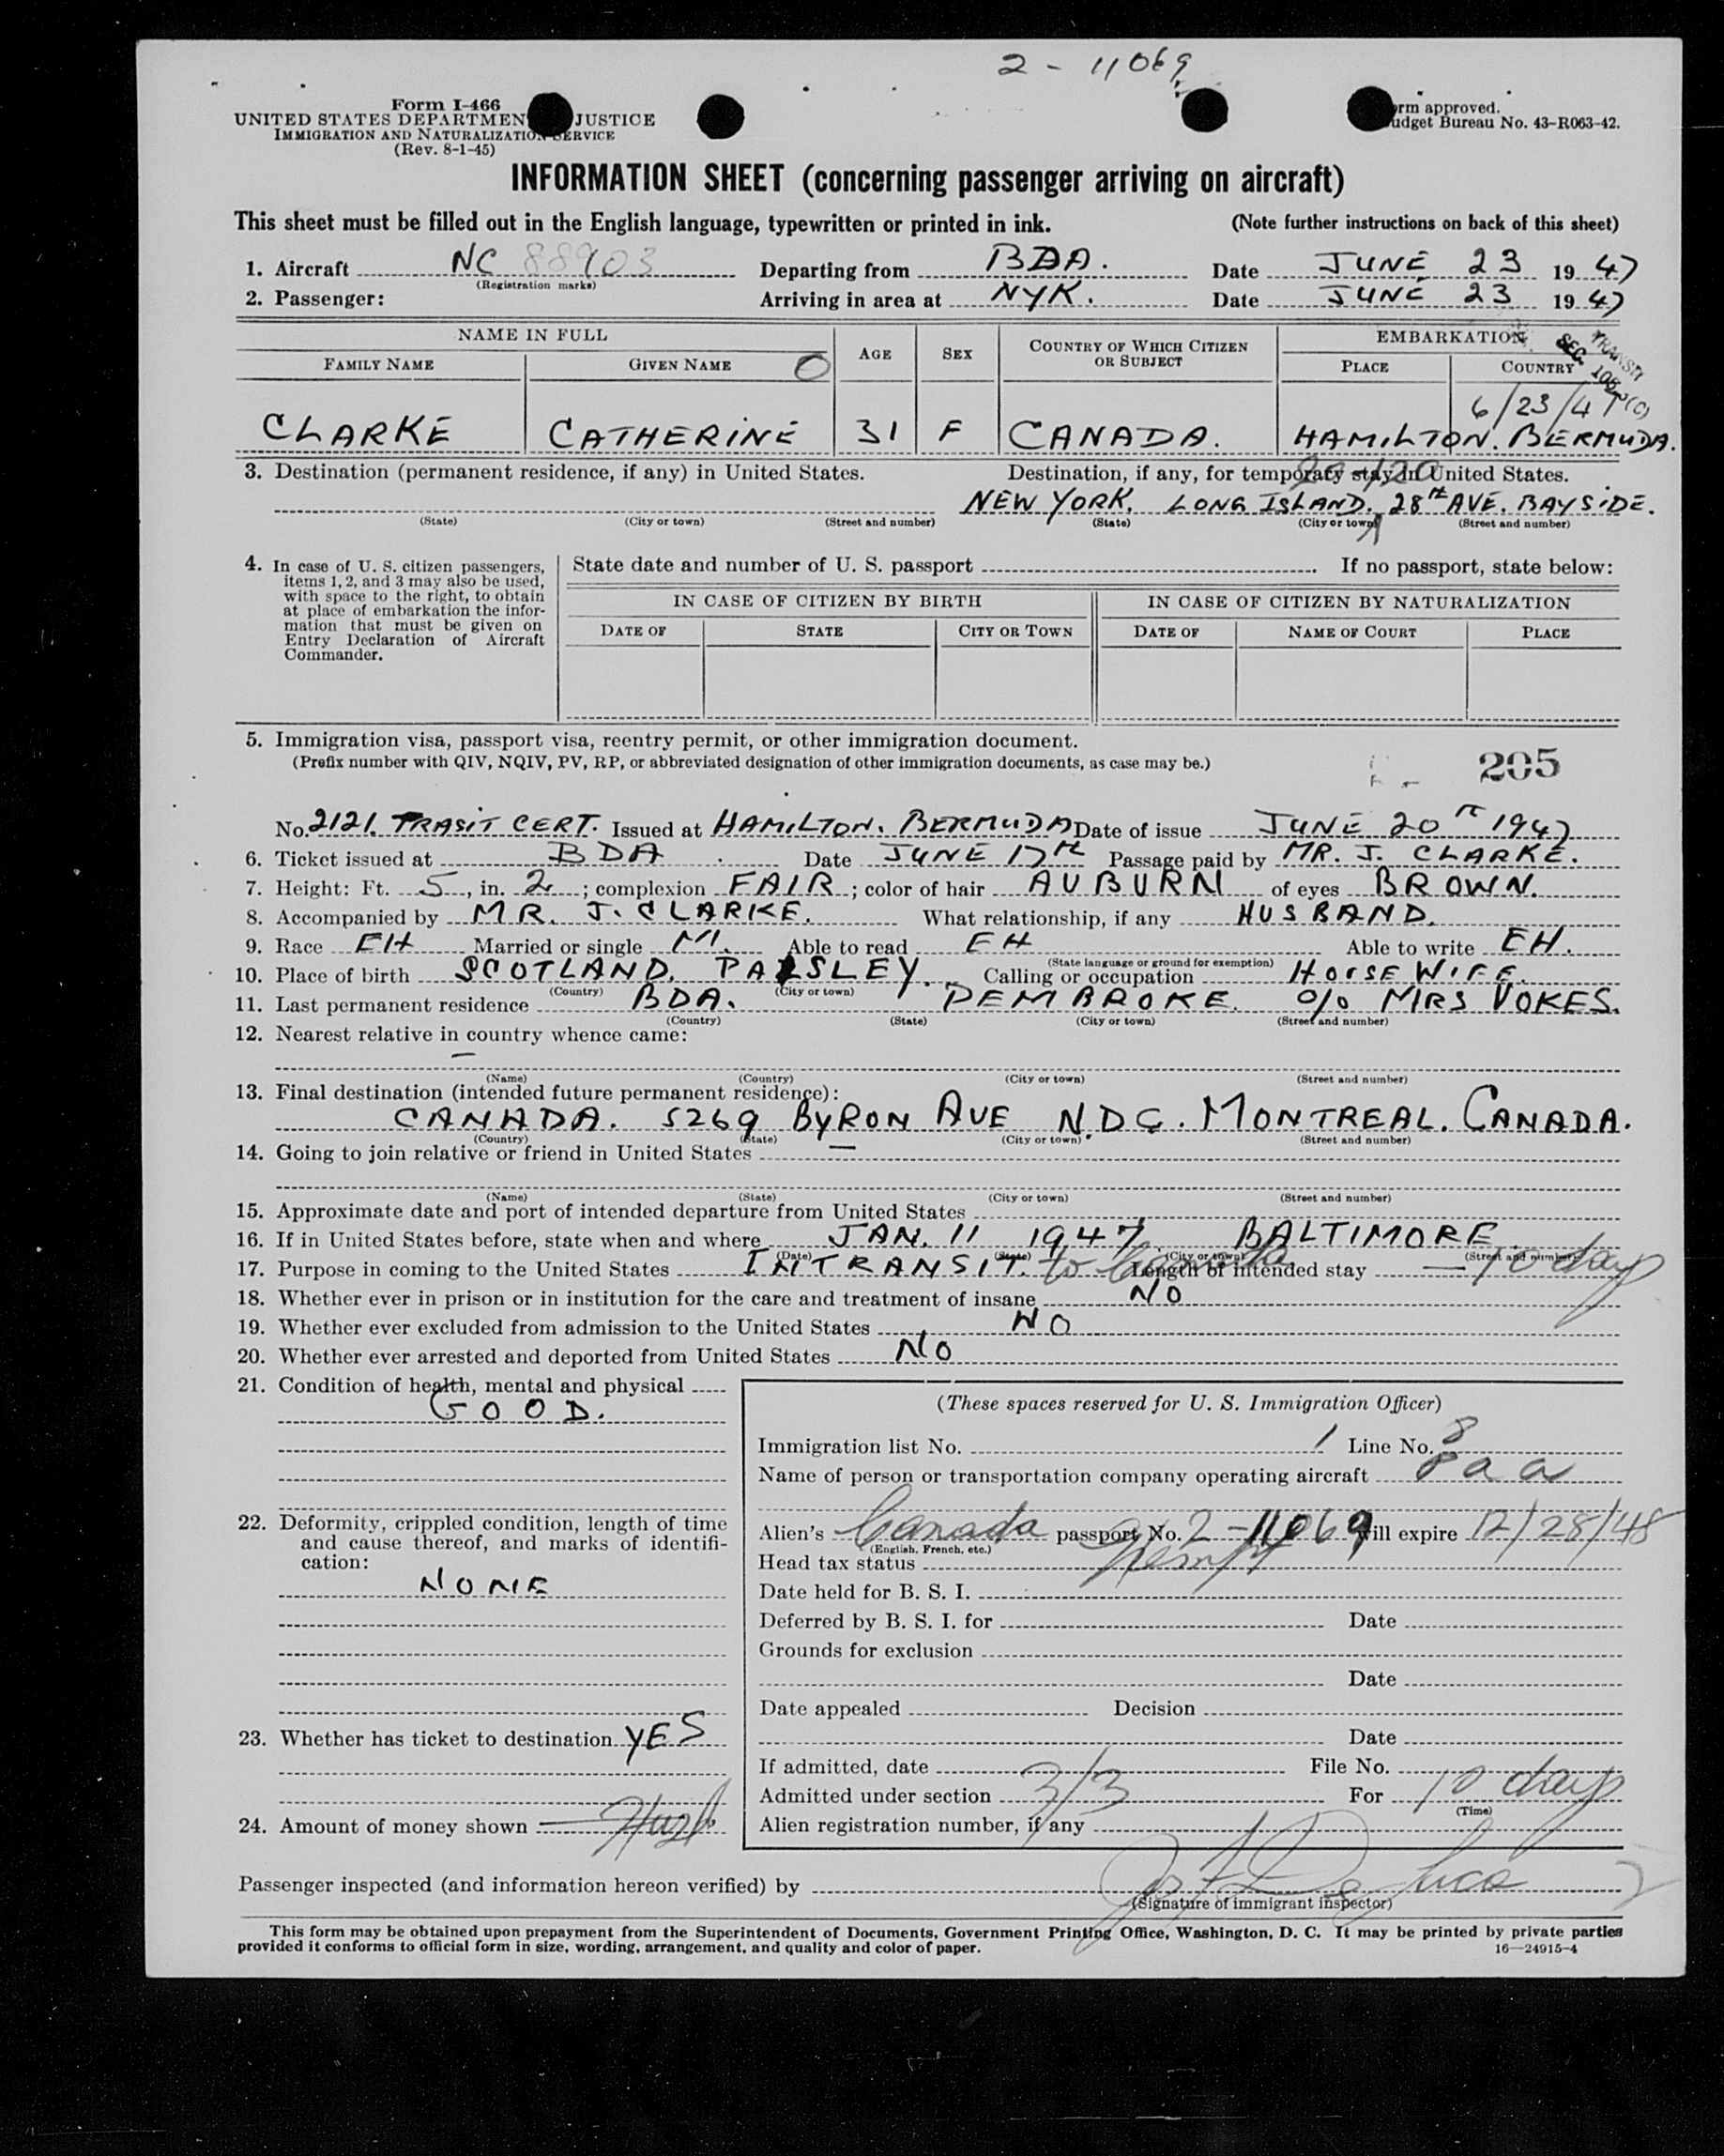 2 - 11069
Form I-466
UNITED STATES DEPARTMEN JUSTICE
IMMIGRATION AND NATURALIZATION SERVICE
(Rev. 8-1-45)
rm approved.
udget Bureau No. 43-R063-42.
INFORMATION SHEET (concerning passenger arriving on aircraft)
This sheet must be filled out in the English language, typewritten or printed in ink. (Note further instructions on back of this sheet)
1. Aircraft NC 88903 Departing from BDA. Date JUNE 23 1947
(Registration marks)
2. Passenger: Arriving in area at NYK. Date JUNE 23 1947
NAME IN FULL AGE SEX COUNTRY OF WHICH CITIZEN OR SUBJECT EMBARKATION
FAMILY NAME GIVEN NAME PLACE COUNTRY
TRANSIT
SEC.
6/23/47
CLARKE CATHERINE 31 F CANADA. HAMILTON. BERMUDA.
3. Destination (permanent residence, if any) in United States. Destination, if any, for temporary stay in United States.
NEW YORK. LONG ISLAND. 28TH AVE. BAYSIDE.
(State) (City or town) (Street and number) (State) (City or town) (Street and number)
4. In case of U. S. citizen passengers, items 1, 2, and 3 may also be used, with space to the right, to obtain at place of embarkation the information that must be given on Entry Declaration of Aircraft Commander.
State date and number of U. S. passport If no passport, state below:
IN CASE OF CITIZEN BY BIRTH IN CASE OF CITIZEN BY NATURALIZATION
DATE OF STATE CITY OR TOWN DATE OF NAME OF COURT PLACE
5. Immigration visa, passport visa, reentry permit, or other immigration document.
(Prefix number with QIV, NQIV, PV, RP, or abbreviated designation of other immigration documents, as case may be.)
205
No. 2121. TRASIT CERT. Issued at HAMILTON. BERMUDA Date of issue JUNE 20TH 1947
6. Ticket issued at BDA. Date JUNE 17TH Passage paid by MR. J. CLARKE.
7. Height: Ft. 5, in. 2; complexion FAIR; color of hair AUBURN of eyes BROWN.
8. Accompanied by MR. J. CLARKE. What relationship, if any HUSBAND.
9. Race EH Married or single M. Able to read EH Able to write EH.
(State language or ground for exemption)
10. Place of birth SCOTLAND. PAISLEY. Calling or occupation HOUSE WIFE.
(Country) (City or town)
11. Last permanent residence BDA. PEMBROKE. c/o MRS VOKES.
(Country) (State) (City or town) (Street and number)
12. Nearest relative in country whence came:
—
(Name) (Country) (City or town) (Street and number)
13. Final destination (intended future permanent residence):
CANADA. 5269 BYRON AVE N.D.G. MONTREAL. CANADA.
(Country) (State) (City or town) (Street and number)
14. Going to join relative or friend in United States —
(Name) (State) (City or town) (Street and number)
15. Approximate date and port of intended departure from United States
16. If in United States before, state when and where JAN. 11 1947 BALTIMORE
(Date) (State) (City or town) (Street and number)
17. Purpose in coming to the United States INTRANSIT. to Canada Length of intended stay — 10 days
18. Whether ever in prison or in institution for the care and treatment of insane NO
19. Whether ever excluded from admission to the United States NO
20. Whether ever arrested and deported from United States NO
21. Condition of health, mental and physical
GOOD.
22. Deformity, crippled condition, length of time and cause thereof, and marks of identification:
NONE
23. Whether has ticket to destination YES
24. Amount of money shown — Husb
(These spaces reserved for U. S. Immigration Officer)
Immigration list No. 1 Line No. 8
Name of person or transportation company operating aircraft P a a
Alien's Canada passport No. 2-11069 will expire 12/28/48
(English, French, etc.)
Head tax status Exempt
Date held for B. S. I.
Deferred by B. S. I. for Date
Grounds for exclusion
Date
Date appealed Decision
Date
If admitted, date File No.
Admitted under section 3/3 For 10 days
(Time)
Alien registration number, if any
Passenger inspected (and information hereon verified) by
(Signature of immigrant inspector)
This form may be obtained upon prepayment from the Superintendent of Documents, Government Printing Office, Washington, D. C. It may be printed by private parties
provided it conforms to official form in size, wording, arrangement, and quality and color of paper. 16—24915-4